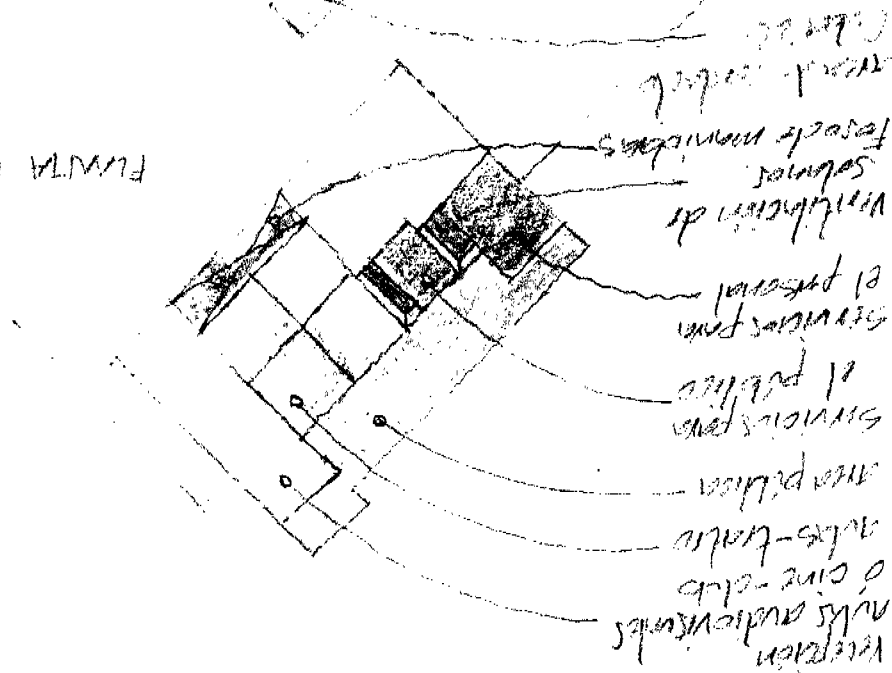 recepción
aulas audiovisuales
ó cine-club
aulas-teatro
area pública
servicios para
el público
servicios para
el personal
ventilación de
sotanos
foso de maniobras
area de
PLANTA